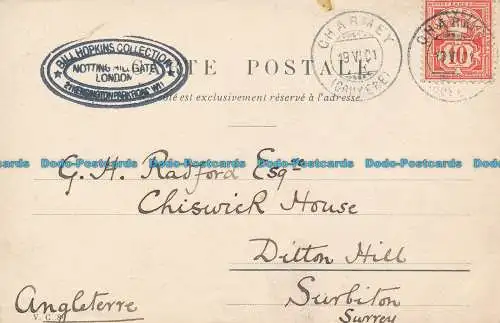 BILL HOPKINS COLLECTION
NOTTING HILL GATE
LONDON
2 KENSINGTON PARK ROAD W11
CARTE POSTALE
CHARMEY
19 VI 01
(GRUYÈRE)
CHARMEY
10
té est exclusivement réservé à l'adresse.
Dodo-Postcards Dodo-Postcards Dodo-Postcards Dodo-Postcards Dodo-Postcards Dodo-Postcards
G. H. Radford Esqre
Chiswick House
Ditton Hill
Surbiton
Surrey
Angleterre
V. C. S.